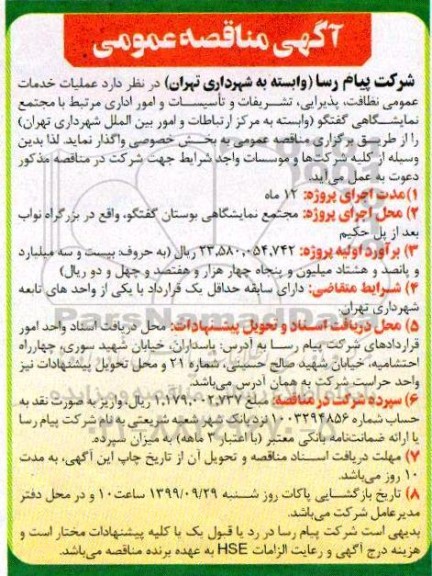 آگهی مناقصه عمومی
شرکت پیام رسا (وابسته به شهرداری تهران) در نظر دارد عملیات خدمات
عمومی نظافت، پذیرایی، تشریفات و تأسیسات و امور اداری مرتبط با مجتمع
نمایشگاهی گفتگو (وابسته به مرکز ارتباطات و امور بین الملل شهرداری تهران)
را از طریق برگزاری مناقصه عمومی به بخش خصوصی واگذار نماید. لذا بدین
وسیله از کلیه شرکت‌ها و موسسات واجد شرایط جهت شرکت در مناقصه مذکور
دعوت به عمل می‌آید.
۱) مدت اجرای پروژه: ۱۲ ماه
۲) محل اجرای پروژه: مجتمع نمایشگاهی بوستان گفتگو، واقع در بزرگراه نواب
بعد از پل حکیم
۳) برآورد اولیه پروژه: ۲۳,۵۸۰,۰۵۴,۷۴۲ ریال (به حروف: بیست و سه میلیارد
و پانصد و هشتاد میلیون و پنجاه چهار هزار و هفتصد و چهل و دو ریال)
۴) شرایط متقاضی: دارای سابقه حداقل یک قرارداد با یکی از واحد های تابعه
شهرداری تهران.
۵) محل دریافت اسناد و تحویل پیشنهادات: محل دریافت اسناد واحد امور
قراردادهای شرکت پیام رسا به آدرس: پاسداران، خیابان شهید سوری، چهارراه
احتشامیه، خیابان شهید صالح حسینی، شماره ۲۱ و محل تحویل پیشنهادات نیز
واحد حراست شرکت به همان آدرس می‌باشد.
۶) سپرده شرکت در مناقصه: مبلغ ۱,۱۷۹,۰۰۲,۷۳۷ ریال، واریز به صورت نقد به
حساب شماره ۱۰۰۳۲۹۴۸۵۶ نزد بانک شهر شعبه شریعتی به نام شرکت پیام رسا
یا ارائه ضمانت‌نامه بانکی معتبر (با اعتبار ۳ ماهه) به میزان سپرده.
۷) مهلت دریافت اسناد مناقصه و تحویل آن از تاریخ چاپ این آگهی، به مدت
۱۰ روز می‌باشد.
۸) تاریخ بازگشایی پاکات روز شنبه ۱۳۹۹/۰۹/۲۹ ساعت ۱۰ و در محل دفتر
مدیرعامل شرکت می‌باشد.
بدیهی است شرکت پیام رسا در رد یا قبول یک یا کلیه پیشنهادات مختار است و
هزینه درج آگهی و رعایت الزامات HSE به عهده برنده مناقصه می‌باشد.
ParsNamadData